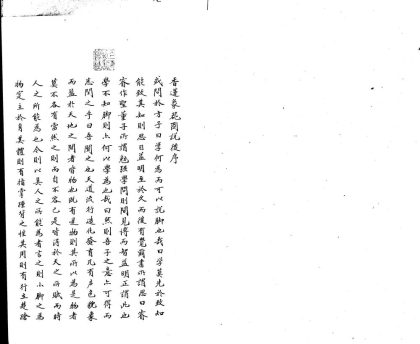 香蓮葵苑商説後序
或問於方子曰學何為而可以説脚也哉曰學莫先於致知
能致其知則思日益明至於久而後有覺爾書所謂思曰睿
睿作聖董子所謂勉強學問則聞見博而智益明正謂此也
學不知脚則亦何以學為也哉曰然則吾子之意亦可得而
悉聞之乎曰吾聞之也天道流行造化發育凡有聲色貌象
而盈於天地之間者皆物也既有是物則其所以為是物者
莫不各有當然之則而自不容已是皆得於天之所賦而非
人之所能為也今則以其人之所能為者言之則小脚之為
物定主於身其體則有指掌踵背之性其用則有行立